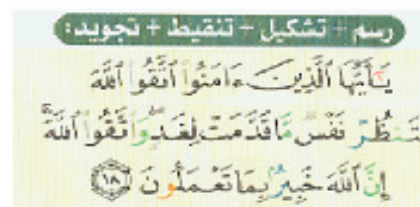 رسم + تشكيل + تنقيط + تجويد:
يَٰٓأَيُّهَا ٱلَّذِينَ ءَامَنُوا۟ ٱتَّقُوا۟ ٱللَّهَ
تَنظُرْ نَفْسٌ مَّا قَدَّمَتْ لِغَدٍ وَٱتَّقُوا۟ ٱللَّهَ ۚ
إِنَّ ٱللَّهَ خَبِيرٌۢ بِمَا تَعْمَلُونَ ١٨